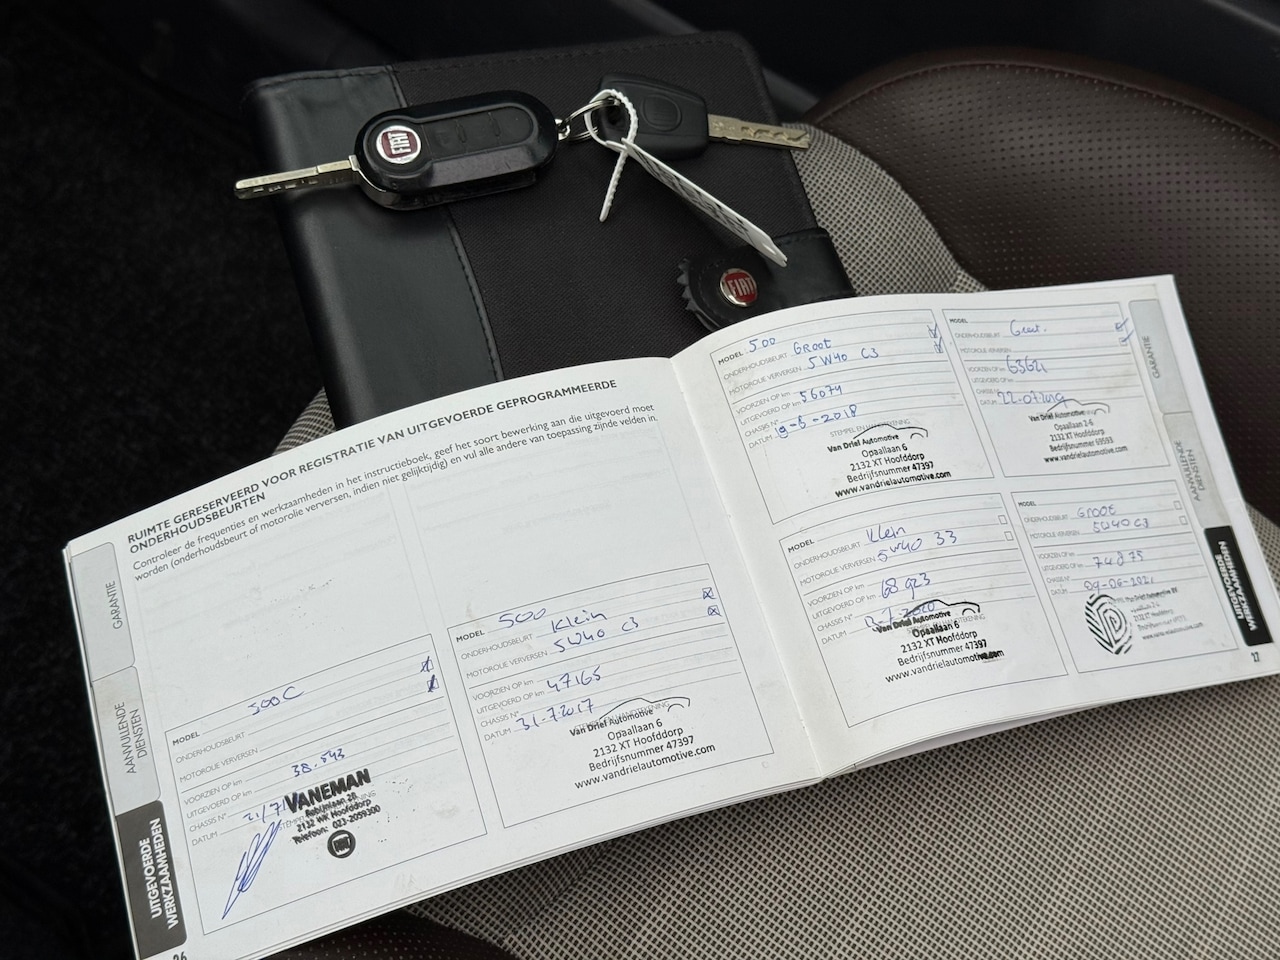 FIAT
FIAT
RUIMTE GERESERVEERD VOOR REGISTRATIE VAN UITGEVOERDE GEPROGRAMMEERDE
ONDERHOUDSBEURTEN
Controleer de frequenties en werkzaamheden in het instructieboek, geef het soort bewerking aan die uitgevoerd moet
worden (onderhoudsbeurt of motorolie verversen, indien niet gelijktijdig) en vul alle andere van toepassing zijnde velden in.
GARANTIE
AANVULLENDE
DIENSTEN
UITGEVOERDE
WERKZAAMHEDEN
26
MODEL 500C
ONDERHOUDSBEURT
MOTOROLIE VERVERSEN
VOORZIEN OP km
UITGEVOERD OP km 38.543
CHASSIS N°
DATUM 21/7/
VANEMAN
Robijnlaan 2B
2132 WK Hoofddorp
Telefoon: 023-2059300
MODEL 500
ONDERHOUDSBEURT Klein
MOTOROLIE VERVERSEN 5W40 C3
VOORZIEN OP km
UITGEVOERD OP km 47165
CHASSIS N°
DATUM 31-7-2017
Van Driel Automotive
Opaallaan 6
2132 XT Hoofddorp
Bedrijfsnummer 47397
www.vandrielautomotive.com
MODEL 500
ONDERHOUDSBEURT GROOT
MOTOROLIE VERVERSEN 5W40 C3
VOORZIEN OP km
UITGEVOERD OP km 56074
CHASSIS N°
DATUM 19-6-2018
STEMPEL EN HANDTEKENING
Van Driel Automotive
Opaallaan 6
2132 XT Hoofddorp
Bedrijfsnummer 47397
www.vandrielautomotive.com
MODEL
ONDERHOUDSBEURT Groot.
MOTOROLIE VERVERSEN
VOORZIEN OP km
UITGEVOERD OP km
CHASSIS N°
DATUM 22-07-2019
Van Driel Automotive
Opaallaan 2-6
2132 XT Hoofddorp
Bedrijfsnummer
www.vandrielautomotive.com
MODEL
ONDERHOUDSBEURT Klein
MOTOROLIE VERVERSEN 5W40 33
VOORZIEN OP km
UITGEVOERD OP km 68923
CHASSIS N°
DATUM
Van Driel Automotive
Opaallaan 6
2132 XT Hoofddorp
Bedrijfsnummer 47397
www.vandrielautomotive.com
MODEL
ONDERHOUDSBEURT GROOT
MOTOROLIE VERVERSEN 5W40 C3
VOORZIEN OP km
UITGEVOERD OP km 74875
CHASSIS N°
DATUM 09-06-2021
Van Driel Automotive BV
2132 XT Hoofddorp
www.vandrielautomotive.com
GARANTIE
AANVULLENDE
DIENSTEN
UITGEVOERDE
WERKZAAMHEDEN
27